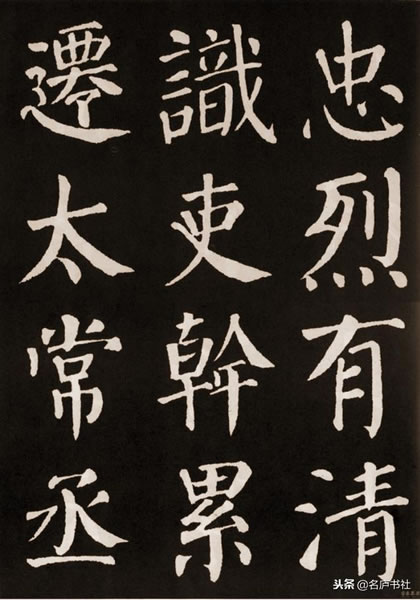 忠烈有清
識吏幹累
遷太常丞
头条@名庐书社